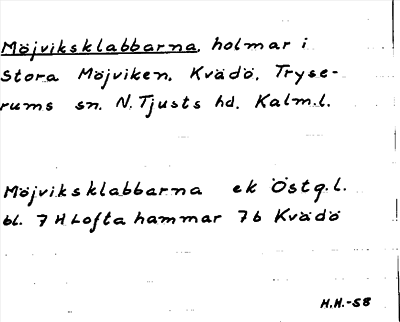 Möjviksklabbarna, holmar i
Stora Möjviken, Kvädö, Tryse-
rums sn. N. Tjusts hd. Kalm.l.
Möjviksklabbarna ek Östg.l.
bl. 7 H Loftahammar 7b Kvädö
H.H.-58